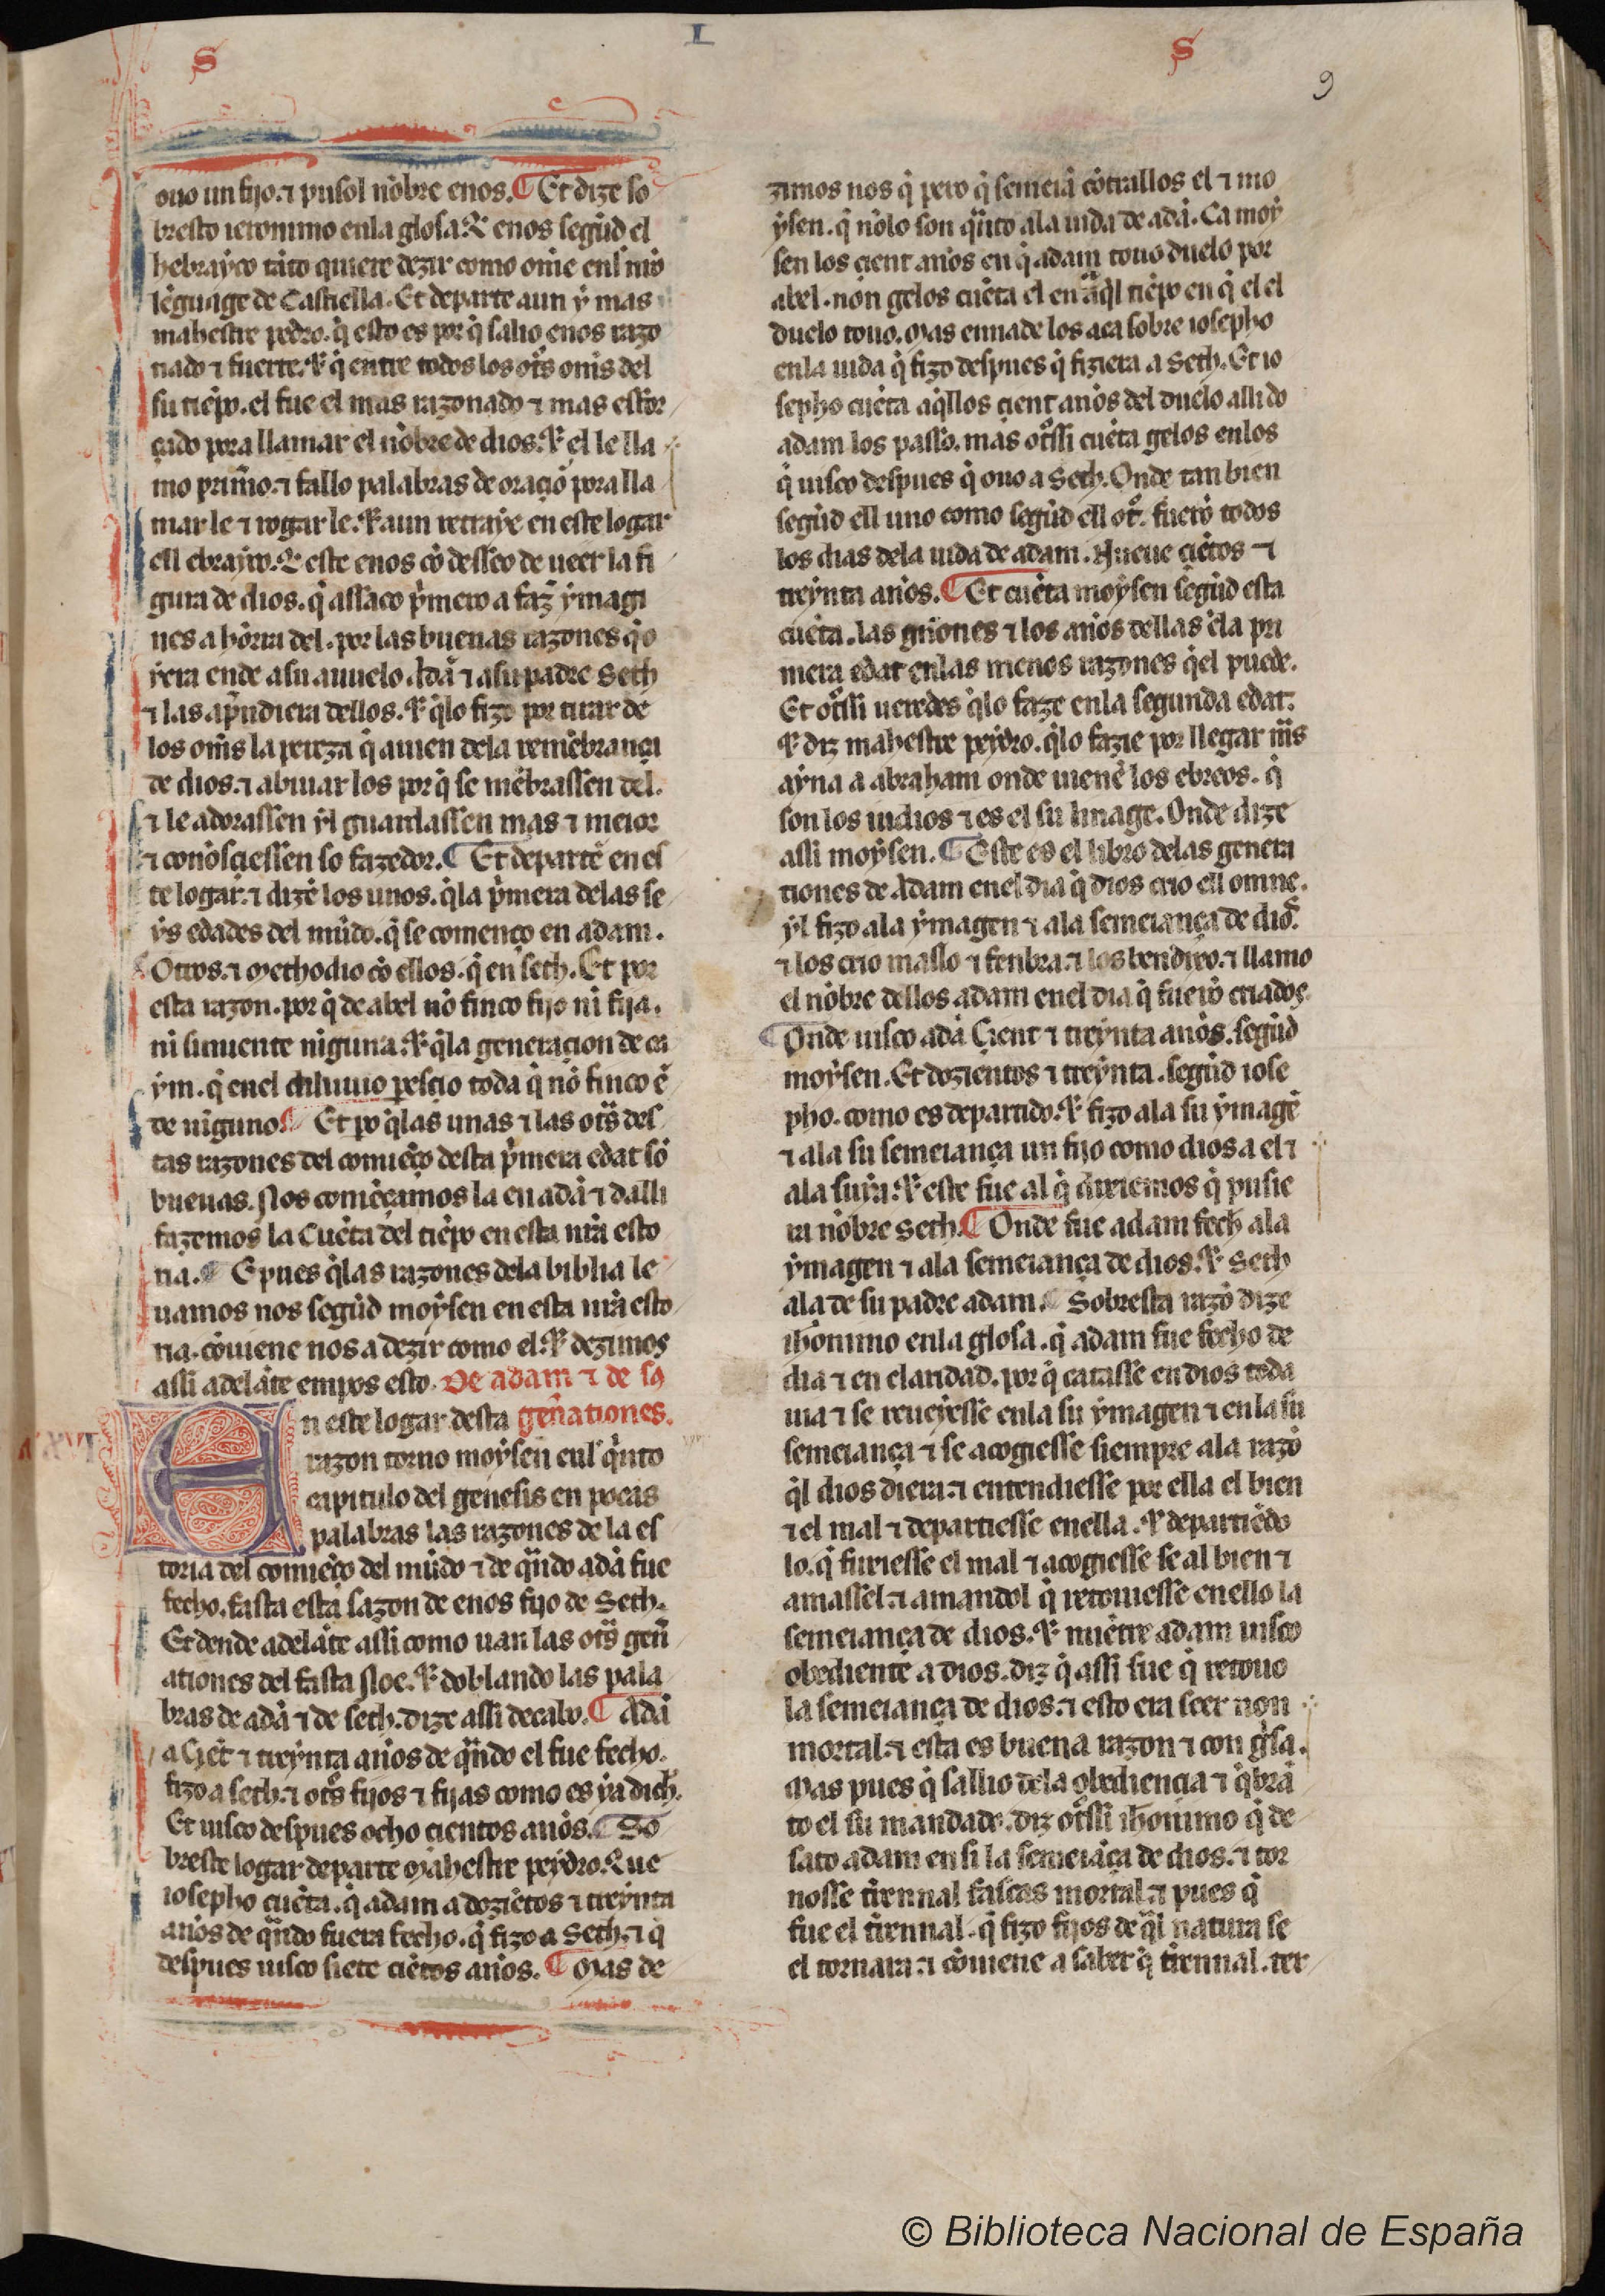 S
L
S
9
ouo un fijo. ⁊ pusol nõbre enos. ¶ Et dize so
bresto ieronimo en la glosa. Q̃ enos segũd el
hebrayco tãto quiere dezir como om̃e enl nr̃o
lẽguage de Castiella. Et departe aun y mas
mahestre pedro. q̃ esto es por q̃ salio enos razo
nado ⁊ fuerte. ⁊ q̃ entre todos los otr̃s om̃s del
su tiẽpo. el fue el mas razonado ⁊ mas esfor
çado pora llamar el nõbre de dios. ⁊ el le lla
mo prim̃o. ⁊ fallo palabras de oraciõ pora lla
mar le ⁊ rogar le. ⁊ aun retraye en este logar
ell ebrayco. Q̃ este enos cõ desseo de ueer la fi
gura de dios. q̃ assaco p̃mero a faz̃ ymagi
nes a hõrra del. por las buenas razones q̃ o
yera ende a su auuelo Adã ⁊ a su padre Seth
⁊ las ap̃ndiera dellos. ⁊ q̃lo fizo por tirar de
los om̃s la pereza q̃ auien dela remẽbrança
de dios. ⁊ abiuar los por q̃ se mẽbrassen del.
⁊ le adorassen yl guardassen mas ⁊ meior
⁊ conosciessen so fazedor. ¶ Et departẽ en es
te logar. ⁊ dizẽ los unos. q̃la p̃mera delas se
ys edades del mũdo. q̃ se començo en adam.
Otros. ⁊ Methodio cõ ellos. q̃ en seth. Et por
esta razon. por q̃ de abel nõ finco fijo ni fija.
ni simiente niguna. ⁊ q̃la generacion de ca
ym. q̃ enel diluuio perscio toda q̃ nõ finco ẽ
de niguno. ¶ Et po q̃las unas ⁊ las otr̃s des
tas razones del comiẽço desta p̃mera edat sõ
buenas. Nos comẽçamos la en adã ⁊ dalli
fazemos la Cuẽta del tiẽpo en esta nr̃a esto
ria. ¶ E pues q̃las razones dela biblia le
uamos nos segũd moysen en esta nr̃a esto
ria. cõuiene nos a dezir como el. ⁊ dezimos
assi adelãte empos esto. De adam ⁊ de sꝯ
En este logar desta geñationes.
razon torno moysen enl q̃nto
capitulo del genesis en pocas
palabras las razones de la es
toria del comiẽço del mũdo ⁊ de q̃ndo adã fue
fecho. fasta esta sazon de enos fijo de Seth.
Et dende adelãte assi como uan las otr̃s geñ
ationes del fasta Noe. ⁊ doblando las pala
bras de adã ⁊ de seth. dize assi decabo. ¶ Adã
a Ciẽt ⁊ treynta años de q̃ndo el fue fecho.
fizo a seth. ⁊ otr̃s fijos ⁊ fijas como es ya dich̃.
Et uisco despues ocho cientos años. ¶ So
breste logar departe Mahestre peydro. Que
iosepho cuẽta. q̃ adam a doziẽtos ⁊ treynta
años de q̃ndo fuera fecho. q̃ fizo a Seth. ⁊ q̃
despues uisco siete ciẽtos años. ¶ Mas de
zimos nos q̃ pero q̃ semeiã cõtrallos el ⁊ mo
ysen. q̃ nõlo son q̃nto ala uida de adã. Ca moy
sen los cient años en q̃ adam touo duelo por
abel. non gelos cuẽta el en aq̃l tiẽpo en q̃ el el
duelo touo. Mas ennade los aca sobre iosepho
enla uida q̃ fizo despues q̃ fiziera a Seth. Et io
sepho cuẽta aq̃llos cient años del duelo alli do
adam los passo. mas otr̃ssi cuẽta gelos enlos
q̃ uisco despues q̃ ouo a Seth. Onde tan bien
segũd ell uno como segũd ell otr̃. fuerõ todos
los dias dela uida de adam. Nueue ciẽtos ⁊
treynta años. ¶ Et cuẽta moysen segũd esta
cuẽta. las gñiones ⁊ los años dellas ẽla pri
mera edat enlas menos razones q̃el puede.
Et otr̃ssi ueredes q̃lo faze enla segunda edat.
⁊ diz mahestre peydro. q̃lo fazie por llegar mãs
ayna a abraham onde uienẽ los ebreos. q̃
son los iudios ⁊ es el su linage. Onde dize
assi moysen. ¶ Este es el libro delas genera
tiones de Adam enel dia q̃ dios crio ell omne.
yl fizo ala ymagen ⁊ ala semeiança de dios.
⁊ los crio maslo ⁊ fenbra. ⁊ los bendixo. ⁊ llamo
el nõbre dellos adam enel dia q̃ fuerõ criados.
¶ Onde uisco adã Cient ⁊ treynta años. segũd
moysen. Et dozientos ⁊ treynta. segũd iose
pho. como es departido. ⁊ fizo ala su ymagẽ
⁊ ala su semeiança un fijo como dios a el ⁊
ala suya. ⁊ este fue al q̃ dixiemos q̃ pusie
ra nõbre Seth. ¶ Onde fue adam fech ala
ymagen ⁊ ala semeiança de dios. ⁊ Seth
ala de su padre adam. ¶ Sobresta razõ dize
ih̃onimo enla glosa. q̃ adam fue fecho de
dia ⁊ en claridad. por q̃ catasse en dios toda
uia ⁊ se reueyesse enla su ymagen ⁊ en la su
semeiança ⁊ se acogiesse siempre ala razõ
q̃l dios diera. ⁊ entendiesse por ella el bien
⁊ el mal ⁊ departiesse enella. ⁊ departiẽdo
lo. q̃ fuxiesse el mal ⁊ acogiesse se al bien ⁊
amassel. ⁊ amandol q̃ retouiesse enello la
semeiança de dios. ⁊ miẽtre adam uisco
obediente a dios. diz q̃ assi fue q̃ retouo
la semeiança de dios. ⁊ esto era seer non
mortal. ⁊ esta es buena razon ⁊ con g̃sa.
Mas pues q̃ sallio dela obediencia ⁊ q̃brã
to el su mandado. diz otr̃ssi ih̃onimo q̃ de
sato adam en si la semeiãça de dios. ⁊ tor
nosse tir̃ennal fascas mortal. ⁊ pues q̃
fue el tir̃ennal. q̃ fizo fijos de q̃l natura se
el tornara. ⁊ cõuiene a saber q̃ tir̃ennal. ter
© Biblioteca Nacional de España